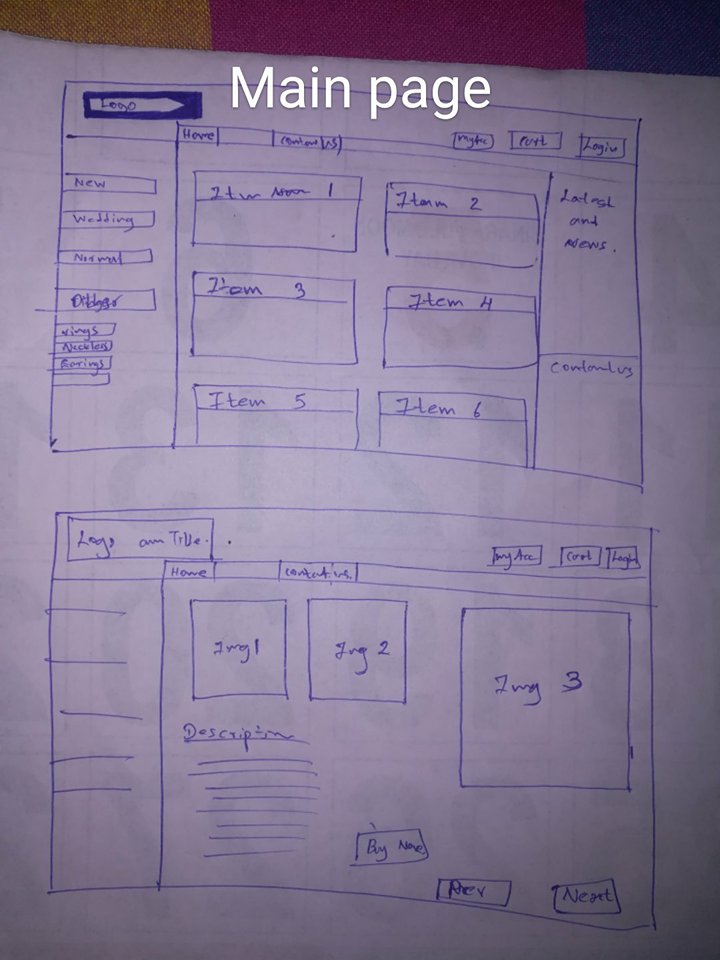 Main page
Logo
Home
contact us
my Acc
cart
Login
New
Wedding
Normal
rings
Neckless
Earings
Item 1
Item 2
Item 3
Item 4
Item 5
Item 6
Latest
and
News.
Contact us
Logo and Title.
my Acc
Cart
Login
Home
contact us
Img 1
Img 2
Img 3
Description
Buy Now
Prev
Next